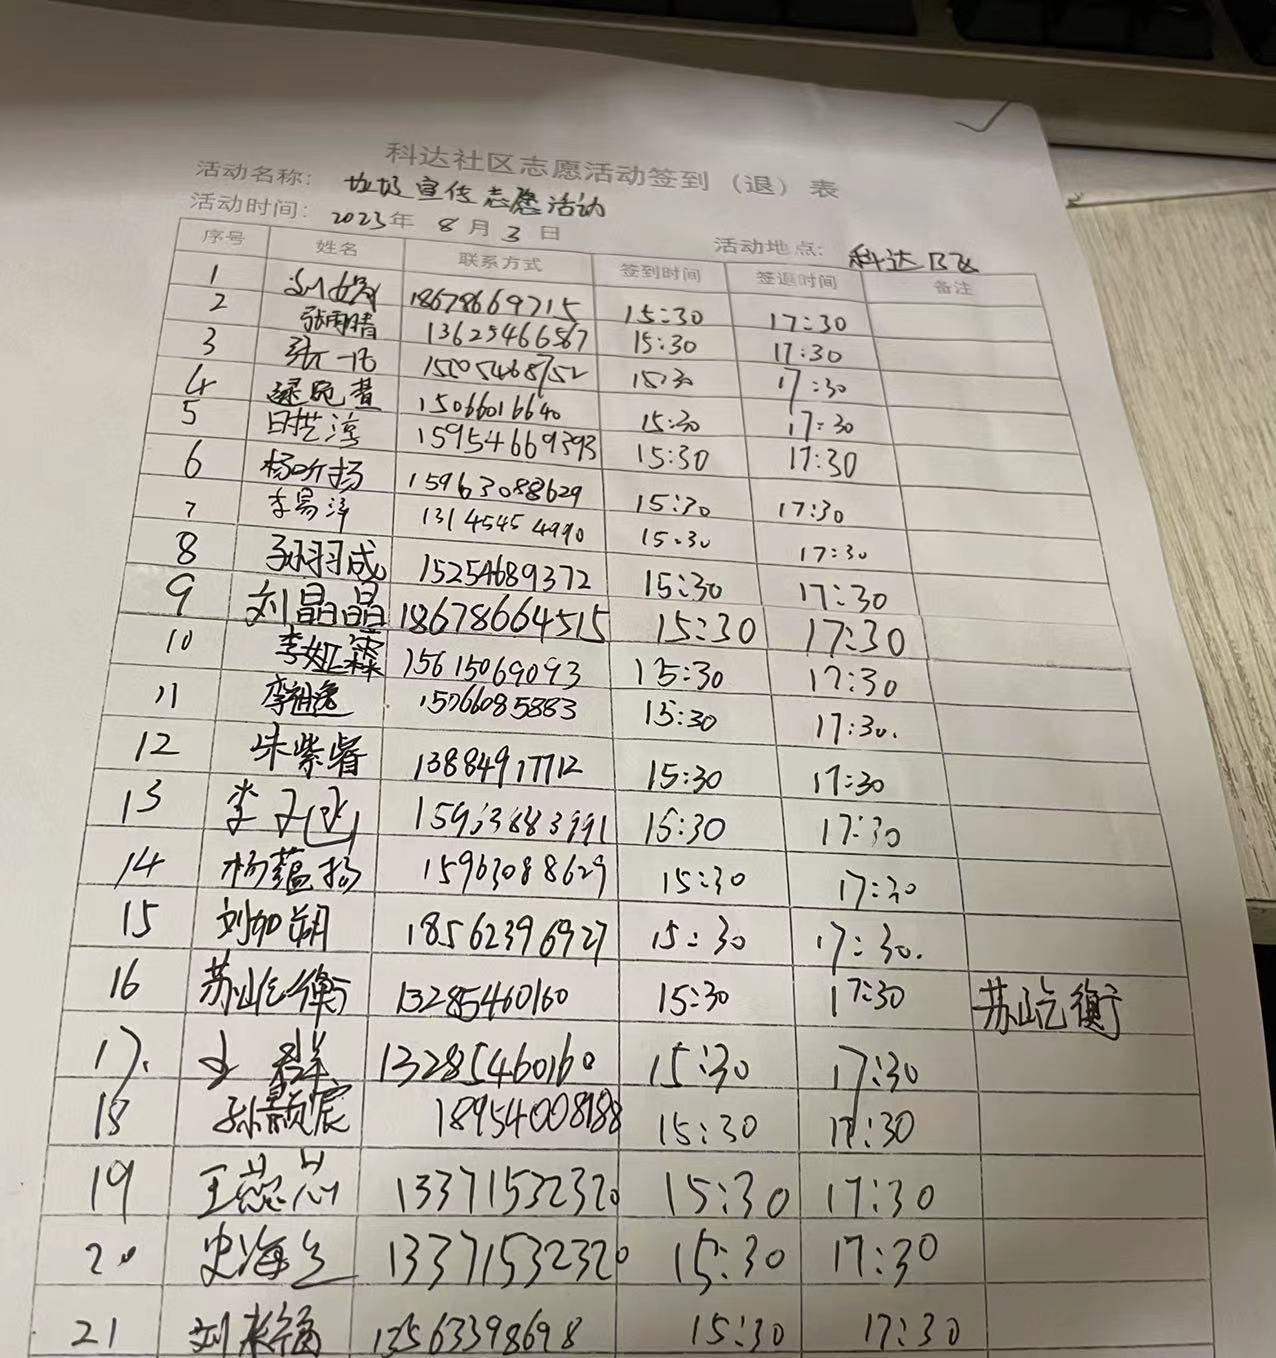 科达社区志愿活动签到（退）表
活动名称： 垃圾宣传志愿活动
活动时间： 2023年 8月3日 活动地点： 科达
序号 姓名 联系方式 签到时间 签退时间 备注
1 18678669715 15:30 17:30
2 张雨晴 13625466567 15:30 17:30
3 张一凡 15:30 17:30
4 15066016640 15:30 17:30
5 15954669393 15:30 17:30
6 杨昕扬 15963088629 15:30 17:30
7 李易泽 13145454990 15:30 17:30
8 孙羽成 15254689372 15:30 17:30
9 刘晶晶 18678664515 15:30 17:30
10 李娅霖 15615069093 15:30 17:30
11 李祖逸 15766085883 15:30 17:30.
12 朱紫睿 13884917712 15:30 17:30
13 李 15:30 17:30
14 杨蕴扬 15963088629 15:30 17:30
15 刘加朔 18562396927 15:30 17:30.
16 苏屹衡 13285460160 15:30 17:30 苏屹衡
17. 群 13285460160 15:30 17:30
18 孙颢宸 18954008188 15:30 17:30
19 王蕊芯 13371532320 15:30 17:30
20 史海 13371532320 15:30 17:30
21 刘 福 13563398698 15:30 17:30